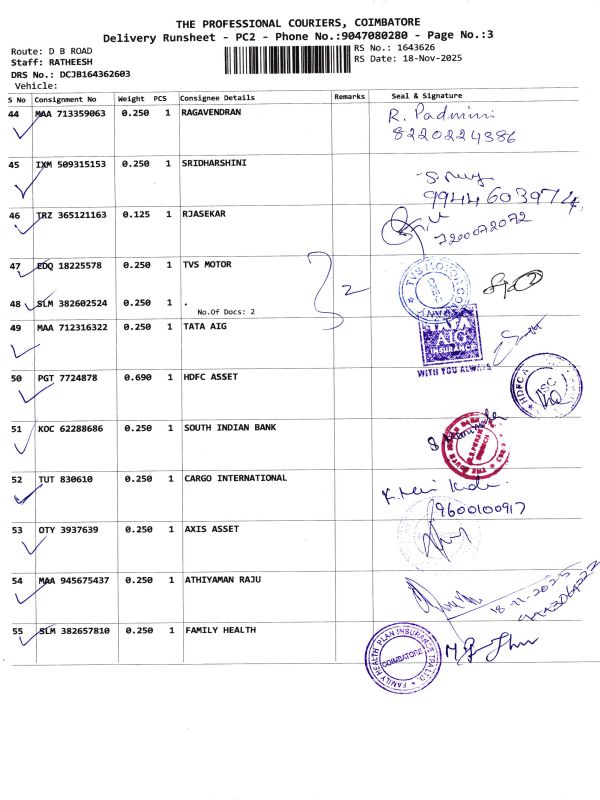 THE PROFESSIONAL COURIERS, COIMBATORE
Delivery Runsheet - PC2 - Phone No.:9047080280 - Page No.:3
Route: D B ROAD
RS No.: 1643626
Staff: RATHEESH
RS Date: 18-Nov-2025
DRS No.: DCJB164362603
Vehicle:
S No Consignment No Weight PCS Consignee Details Remarks Seal & Signature
44 MAA 713359063 0.250 1 RAGAVENDRAN R. Padmini
8220224386
45 IXM 509315153 0.250 1 SRIDHARSHINI
9944603974
46 TRZ 365121163 0.125 1 RJASEKAR
7200072072
47 EDQ 18225578 0.250 1 TVS MOTOR
2
48 SLM 382602524 0.250 1 .
No.Of Docs: 2
49 MAA 712316322 0.250 1 TATA AIG
TATA
AIG
INSURANCE
WITH YOU ALWAYS
50 PGT 7724878 0.690 1 HDFC ASSET
51 KOC 62288686 0.250 1 SOUTH INDIAN BANK
52 TUT 830610 0.250 1 CARGO INTERNATIONAL
9600100917
53 OTY 3937639 0.250 1 AXIS ASSET
54 MAA 945675437 0.250 1 ATHIYAMAN RAJU
18-11-2025
55 SLM 382657810 0.250 1 FAMILY HEALTH
FAMILY HEALTH PLAN INSURANCE
COIMBATORE